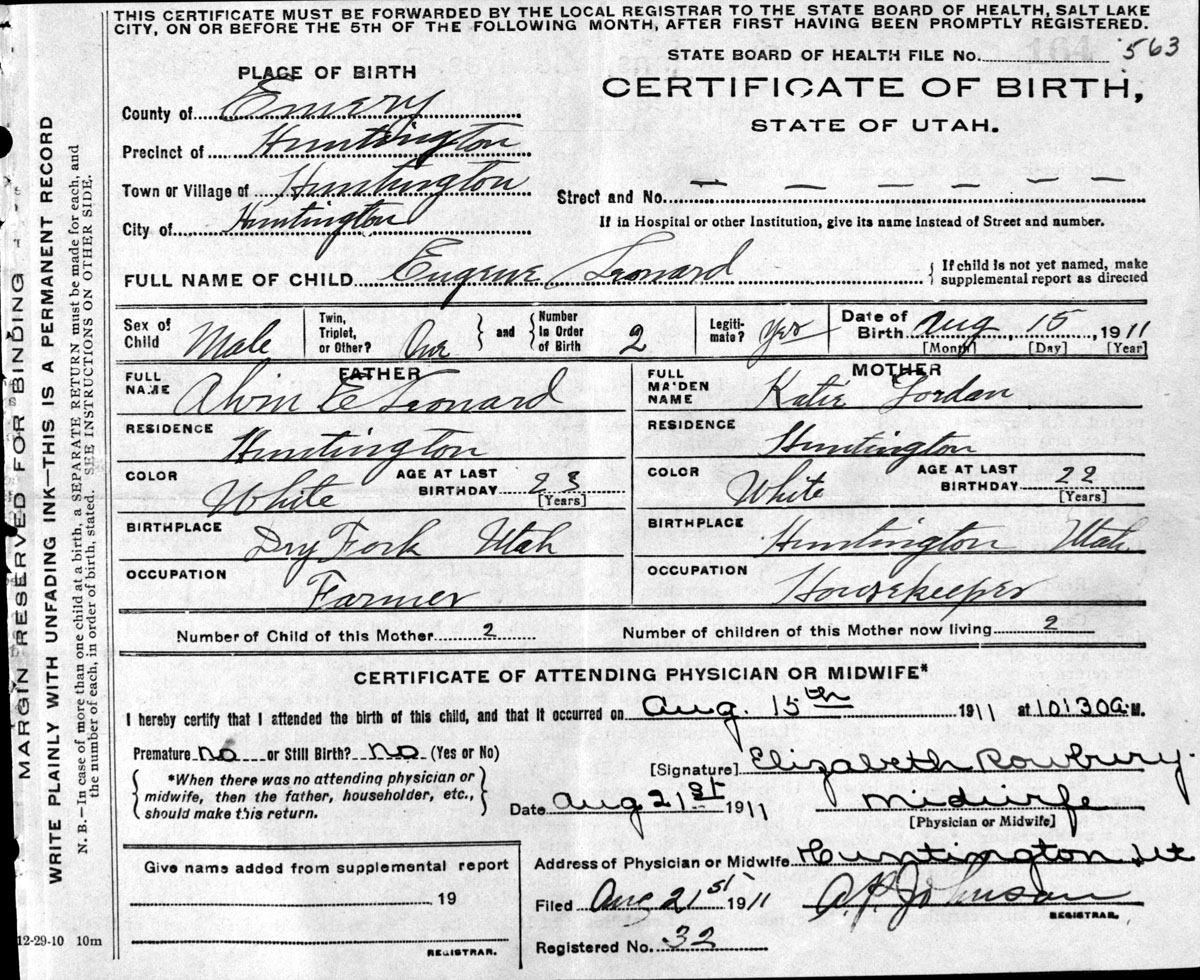 THIS CERTIFICATE MUST BE FORWARDED BY THE LOCAL REGISTRAR TO THE STATE BOARD OF HEALTH, SALT LAKE
CITY, ON OR BEFORE THE 5TH OF THE FOLLOWING MONTH, AFTER FIRST HAVING BEEN PROMPTLY REGISTERED.
STATE BOARD OF HEALTH FILE NO. 563
PLACE OF BIRTH
CERTIFICATE OF BIRTH,
STATE OF UTAH.
County of Emery
Precinct of Huntington
Town or Village of Huntington
Street and No. — — — — — —
City of Huntington
If in Hospital or other Institution, give its name instead of Street and number.
FULL NAME OF CHILD Eugene Leonard
{ If child is not yet named, make
supplemental report as directed
Sex of Child Male
Twin, Triplet, or Other? One
} and {
Number in Order of Birth 2
Legiti-mate? Yes
Date of Birth Aug 15 1911
[Month] [Day] [Year]
FATHER
MOTHER
FULL NAME Alvin E Leonard
FULL MAIDEN NAME Katie Jordan
RESIDENCE Huntington
RESIDENCE Huntington
COLOR White AGE AT LAST BIRTHDAY 23 [Years]
COLOR White AGE AT LAST BIRTHDAY 22 [Years]
BIRTHPLACE Dry Fork Utah
BIRTHPLACE Huntington Utah
OCCUPATION Farmer
OCCUPATION Housekeeper
Number of Child of this Mother 2 Number of children of this Mother now living 2
CERTIFICATE OF ATTENDING PHYSICIAN OR MIDWIFE*
I hereby certify that I attended the birth of this child, and that it occurred on Aug. 15th 1911 at 10:30 A.M.
Premature no or Still Birth? no (Yes or No)
[Signature] Elizabeth Rowbury.
{ *When there was no attending physician or
midwife, then the father, householder, etc.,
should make this return. }
Date Aug 21st 1911
Midwife
[Physician or Midwife]
Give name added from supplemental report
19
REGISTRAR.
Address of Physician or Midwife Huntington Ut
Filed Aug 21st 1911 A.P. Johnson
REGISTRAR.
Registered No. 32
12-29-10 10m
MARGIN RESERVED FOR BINDING
WRITE PLAINLY WITH UNFADING INK—THIS IS A PERMANENT RECORD
N. B.—In case of more than one child at a birth, a SEPARATE RETURN must be made for each, and
the number of each, in order of birth, stated. SEE INSTRUCTIONS ON OTHER SIDE.